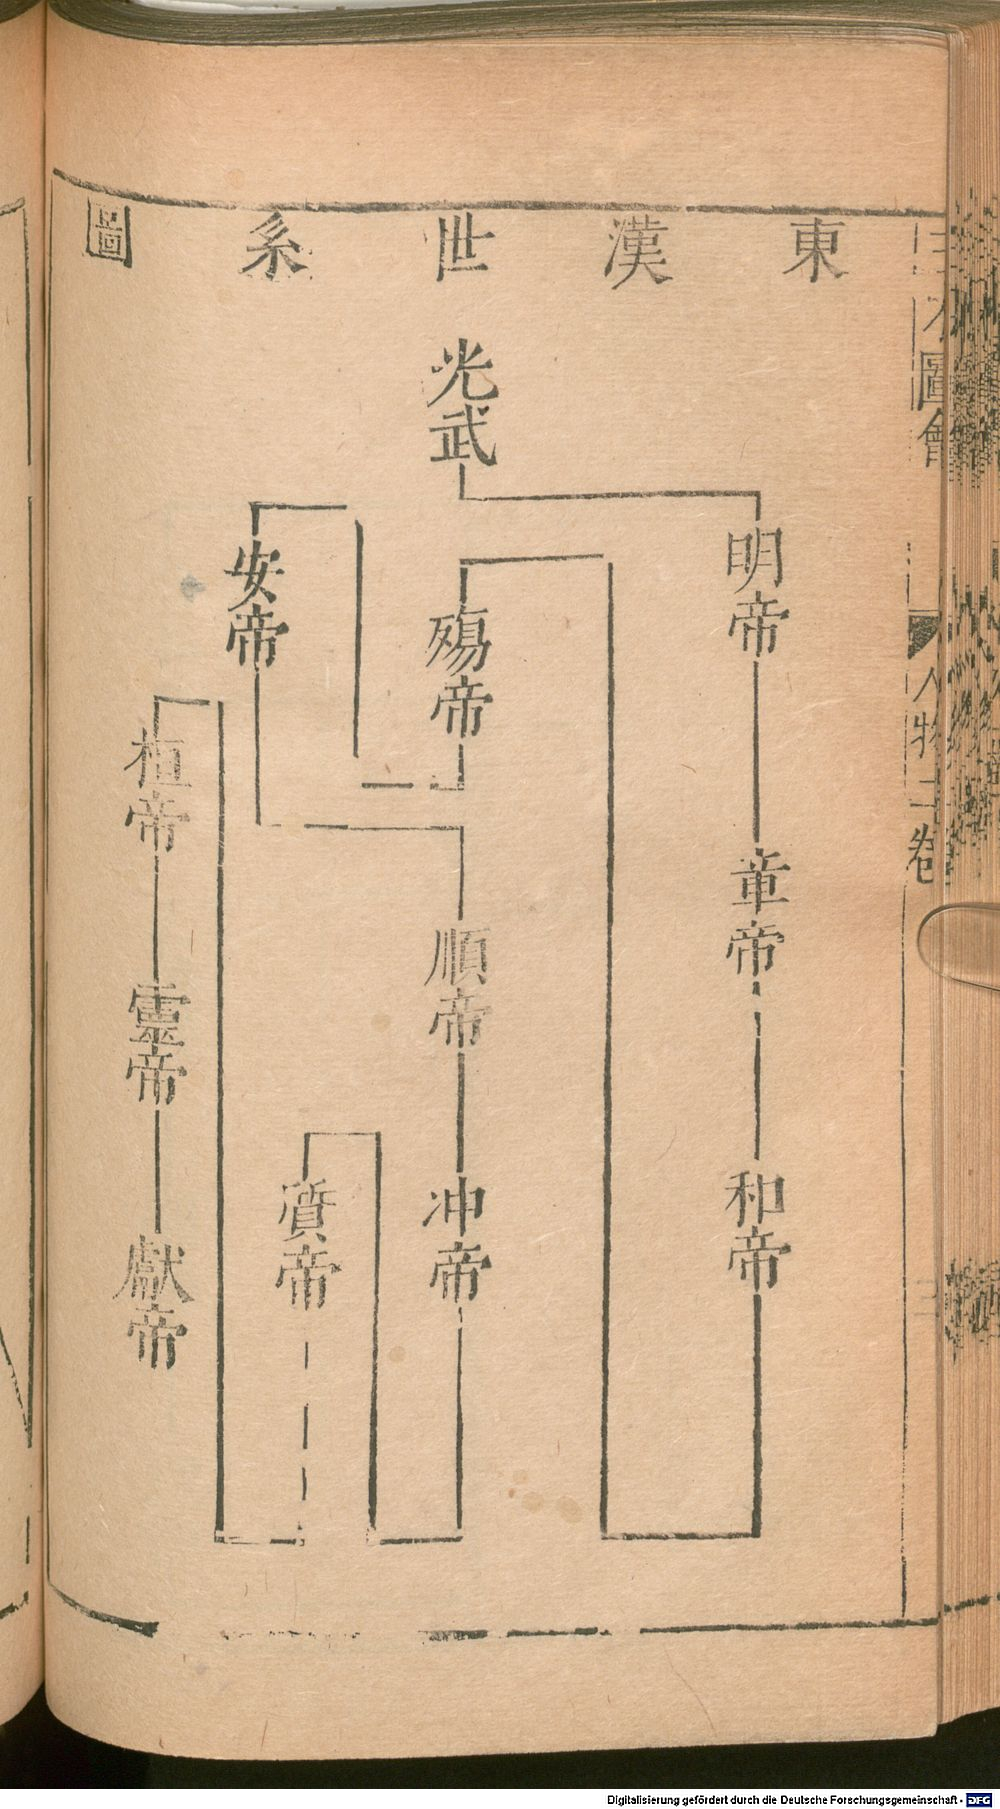 東漢世系圖
光武
明帝
章帝
和帝
殤帝
安帝
順帝
冲帝
質帝
桓帝
靈帝
獻帝
圖會
人物二卷
Digitalisierung gefördert durch die Deutsche Forschungsgemeinschaft - DFG